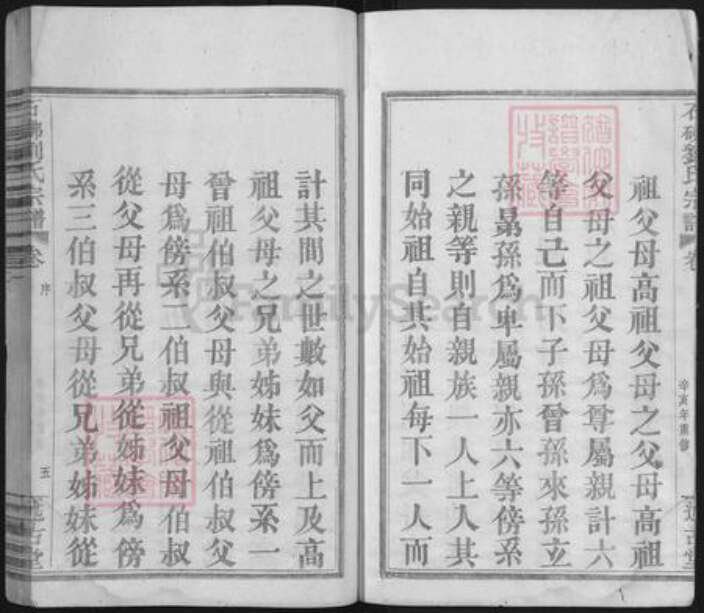 祖父母高祖父母之父母高祖
父母之祖父母爲尊屬親計六
等自己而下子孫曾孫來孫立
孫晜孫爲卑屬親亦六等傍系
之親等則自親族一人上人其
同始祖自其始祖每下一人而
辛亥年重修
計其間之世數如父而上及高
祖父母之兄弟姊妹爲傍系一
曾祖伯叔父母與從祖伯叔父
母爲傍系二伯叔祖父母伯叔
從父母再從兄弟從姊妹爲傍
系三伯叔父母從兄弟姊妹從
劉氏宗譜 卷 序 五
FamilySearch